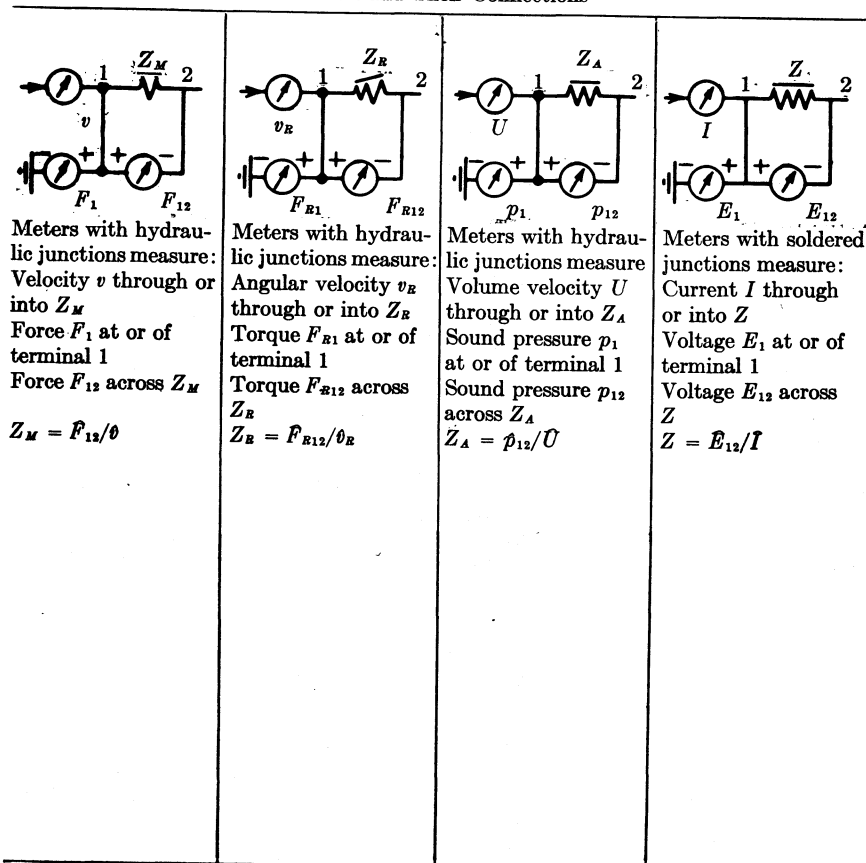 Connections
Z_M
1
2
v
+
+
−
−
F_1
F_12
Meters with hydrau-
lic junctions measure:
Velocity v through or
into Z_M
Force F_1 at or of
terminal 1
Force F_12 across Z_M
Z_M = F̂_12/v̂
Z_R
1
2
v_R
−
+
+
−
F_R1
F_R12
Meters with hydrau-
lic junctions measure:
Angular velocity v_R
through or into Z_R
Torque F_R1 at or of
terminal 1
Torque F_R12 across
Z_R
Z_R = F̂_R12/v̂_R
Z_A
1
2
U
−
+
+
−
p_1
p_12
Meters with hydrau-
lic junctions measure
Volume velocity U
through or into Z_A
Sound pressure p_1
at or of terminal 1
Sound pressure p_12
across Z_A
Z_A = p̂_12/Û
Z
1
2
I
−
+
+
−
E_1
E_12
Meters with soldered
junctions measure:
Current I through
or into Z
Voltage E_1 at or of
terminal 1
Voltage E_12 across
Z
Z = Ê_12/Î